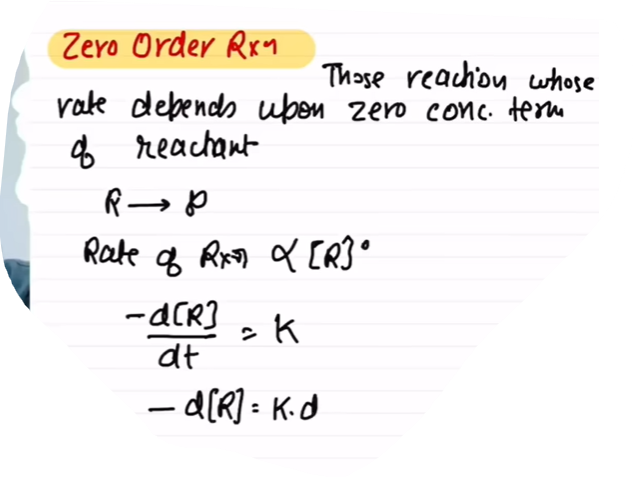 Zero Order Rxn
Those reaction whose
rate depends upon zero conc. term
of reactant
R → P
Rate of Rxn ∝ [R]°
-d[R]/dt = K
- d[R] = K.d